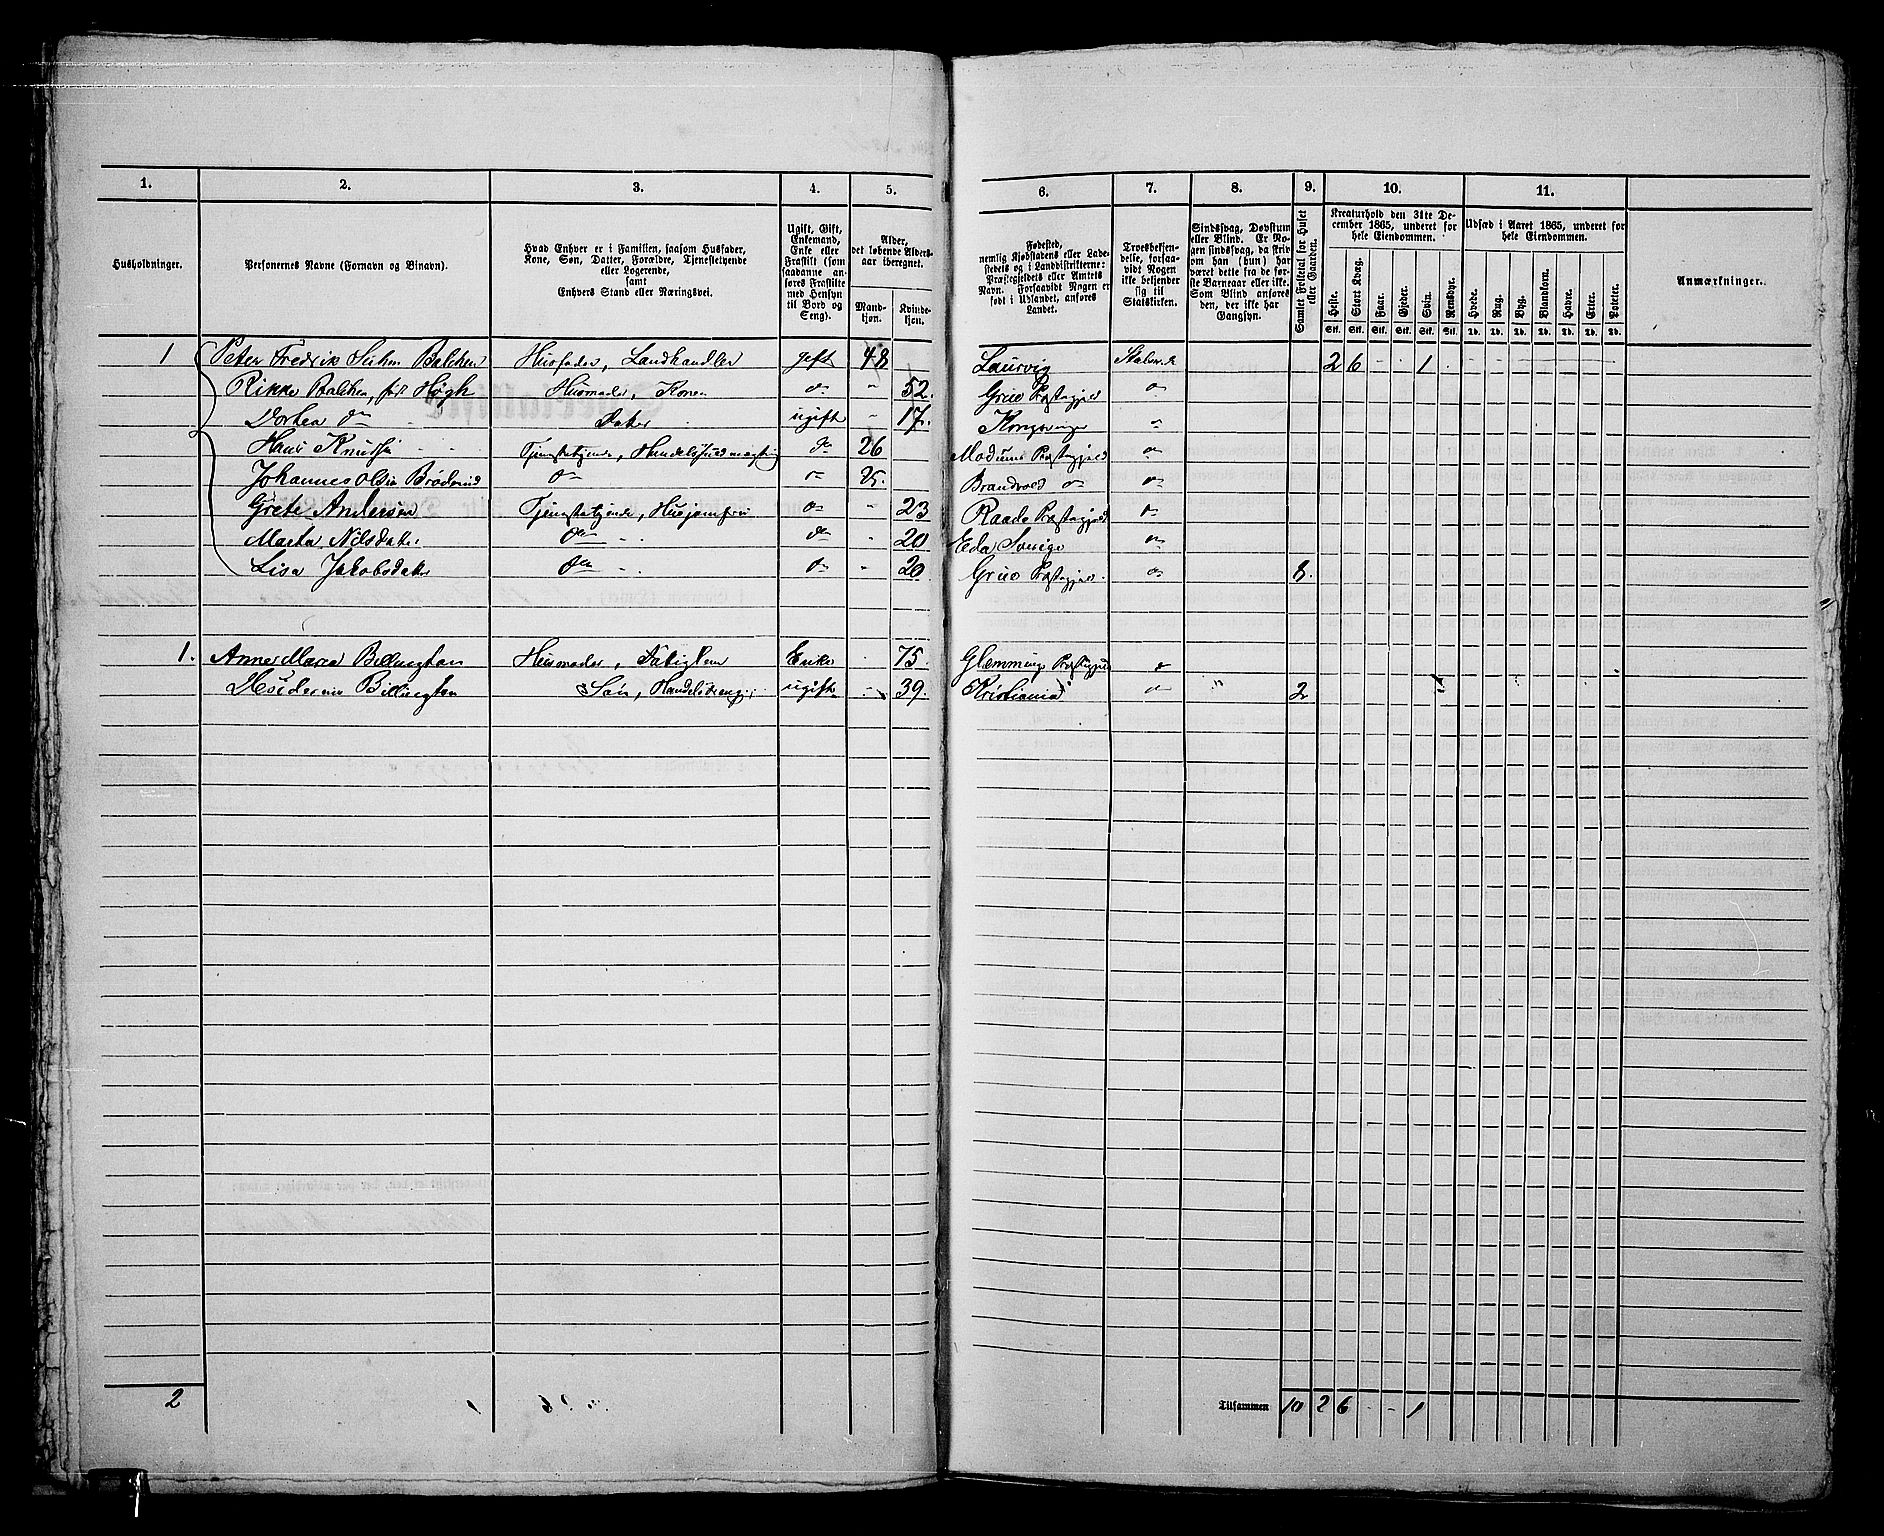 1. 2. 3. 4. 5. 6. 7. 8. 9. 10. 11.
Husholdninger.
Personernes Navne (Fornavn og Binavn).
Hvad Enhver er i Familien, saasom Husfader,
Kone, Søn, Datter, Forældre, Tjenestetyende
eller Logerende,
samt
Enhvers Stand eller Næringsvei.
Ugift, Gift,
Enkemand,
Enke eller
Fraskilt (som
saadanne an-
føres Fraskilte
med Hensyn
til Bord og
Seng).
Alder,
det løbende Alders-
aar iberegnet.
Mand-
kjøn.
Kvinde-
kjøn.
Fødested,
nemlig Kjøbstadens eller Lade-
stedets og i Landdistrikterne:
Præstegjeldets eller Amtets
Navn. Forsaavidt Nogen er
født i Udlandet, anføres
Landet.
Troesbekjen-
delse, forsaa-
vidt Nogen
ikke bekjender
sig til
Statskirken.
Sindssvag, Døvstum
eller Blind. Er No-
gen sindssvag, da skriv
om han (hun) har
været dette fra de før-
ste Barneaar eller ikke.
Som Blind anføres
den, der ikke har
Gangsyn.
Samlet Folketal for Huset
eller Gaarden.
Kreaturhold den 31te De-
cember 1865, underet for
hele Eiendommen.
Heste. Stort Kvæg. Faar. Gjeder. Svin. Rensdyr.
Stk. Stk. Stk. Stk. Stk. Stk.
Udsæd i Aaret 1865, underet for
hele Eiendommen.
Hvede. Rug. Byg. Blandkorn. Havre. Erter. Poteter.
Td. Td. Td. Td. Td. Td. Td.
Anmærkninger.
1 Peter Fredrik Balchen Husfader, Landhandler gift 48 Laurvig 2 6 - - 1
Rikke Balchen, født Høgh Husmoder, Kone do 52. Grue Præstegjeld do
Dorthea do Dater ugift 17. Kongsvinger do
Hans Knudsen Tjenestetyende, Handelsfuldmægtig do 26 Modums Præstegjeld do
Johannes Olsen do do 25. Brandvold do do
Grete Andersen Tjenestetyende, Husjomfru do 23 Raade Præstegjeld do
Marta Nilsdater do do 20 Eda Sverige do
Lisa Jakobsdater do do 20 Grue Præstegjeld do 8.
1. Anne Maria Billington Husmoder, Enke 75. Glemminge Præstegjeld do
Billington Søn, ugift 39. Kristiania do 2
2 Tilsammen 10 2 6 - - 1